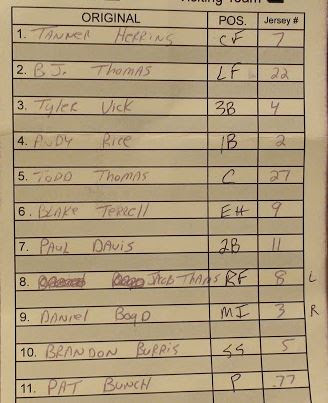 Visiting Team
ORIGINAL POS. Jersey #
1. TANNER HERRING CF 7
2. B.J. THOMAS LF 22
3. Tyler Vick 3B 4
4. ANDY Rice 1B 2
5. TODD THOMAS C 27
6. BLAKE TERRELL EH 9
7. PAUL DAVIS 2B 11
8. JACOB THAMES RF 8 L
9. DANIEL BOYD MI 3 R
10. BRANDON BURRIS SS 5
11. PAT BUNCH P 77